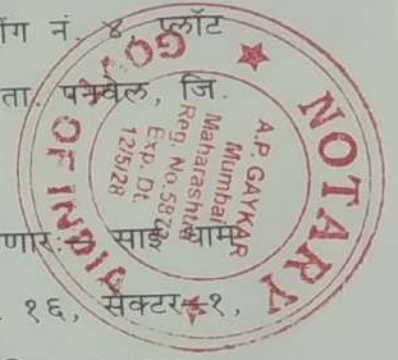 ग नं. ४, प्लॉट
ता. पनवेल, जि.
णार :- साई धाम
१६, सेक्टर-१,
NOTARY
GOVT. OF INDIA
A.P. GAYKAR
Mumbai
Maharashtra
Reg. No.
Exp. Dt.
12/5/28